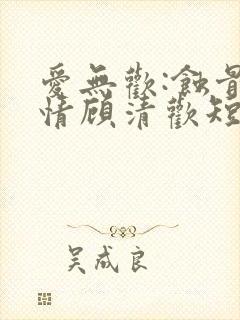 愛無歡:蝕骨
情顧清歡短
吴成良